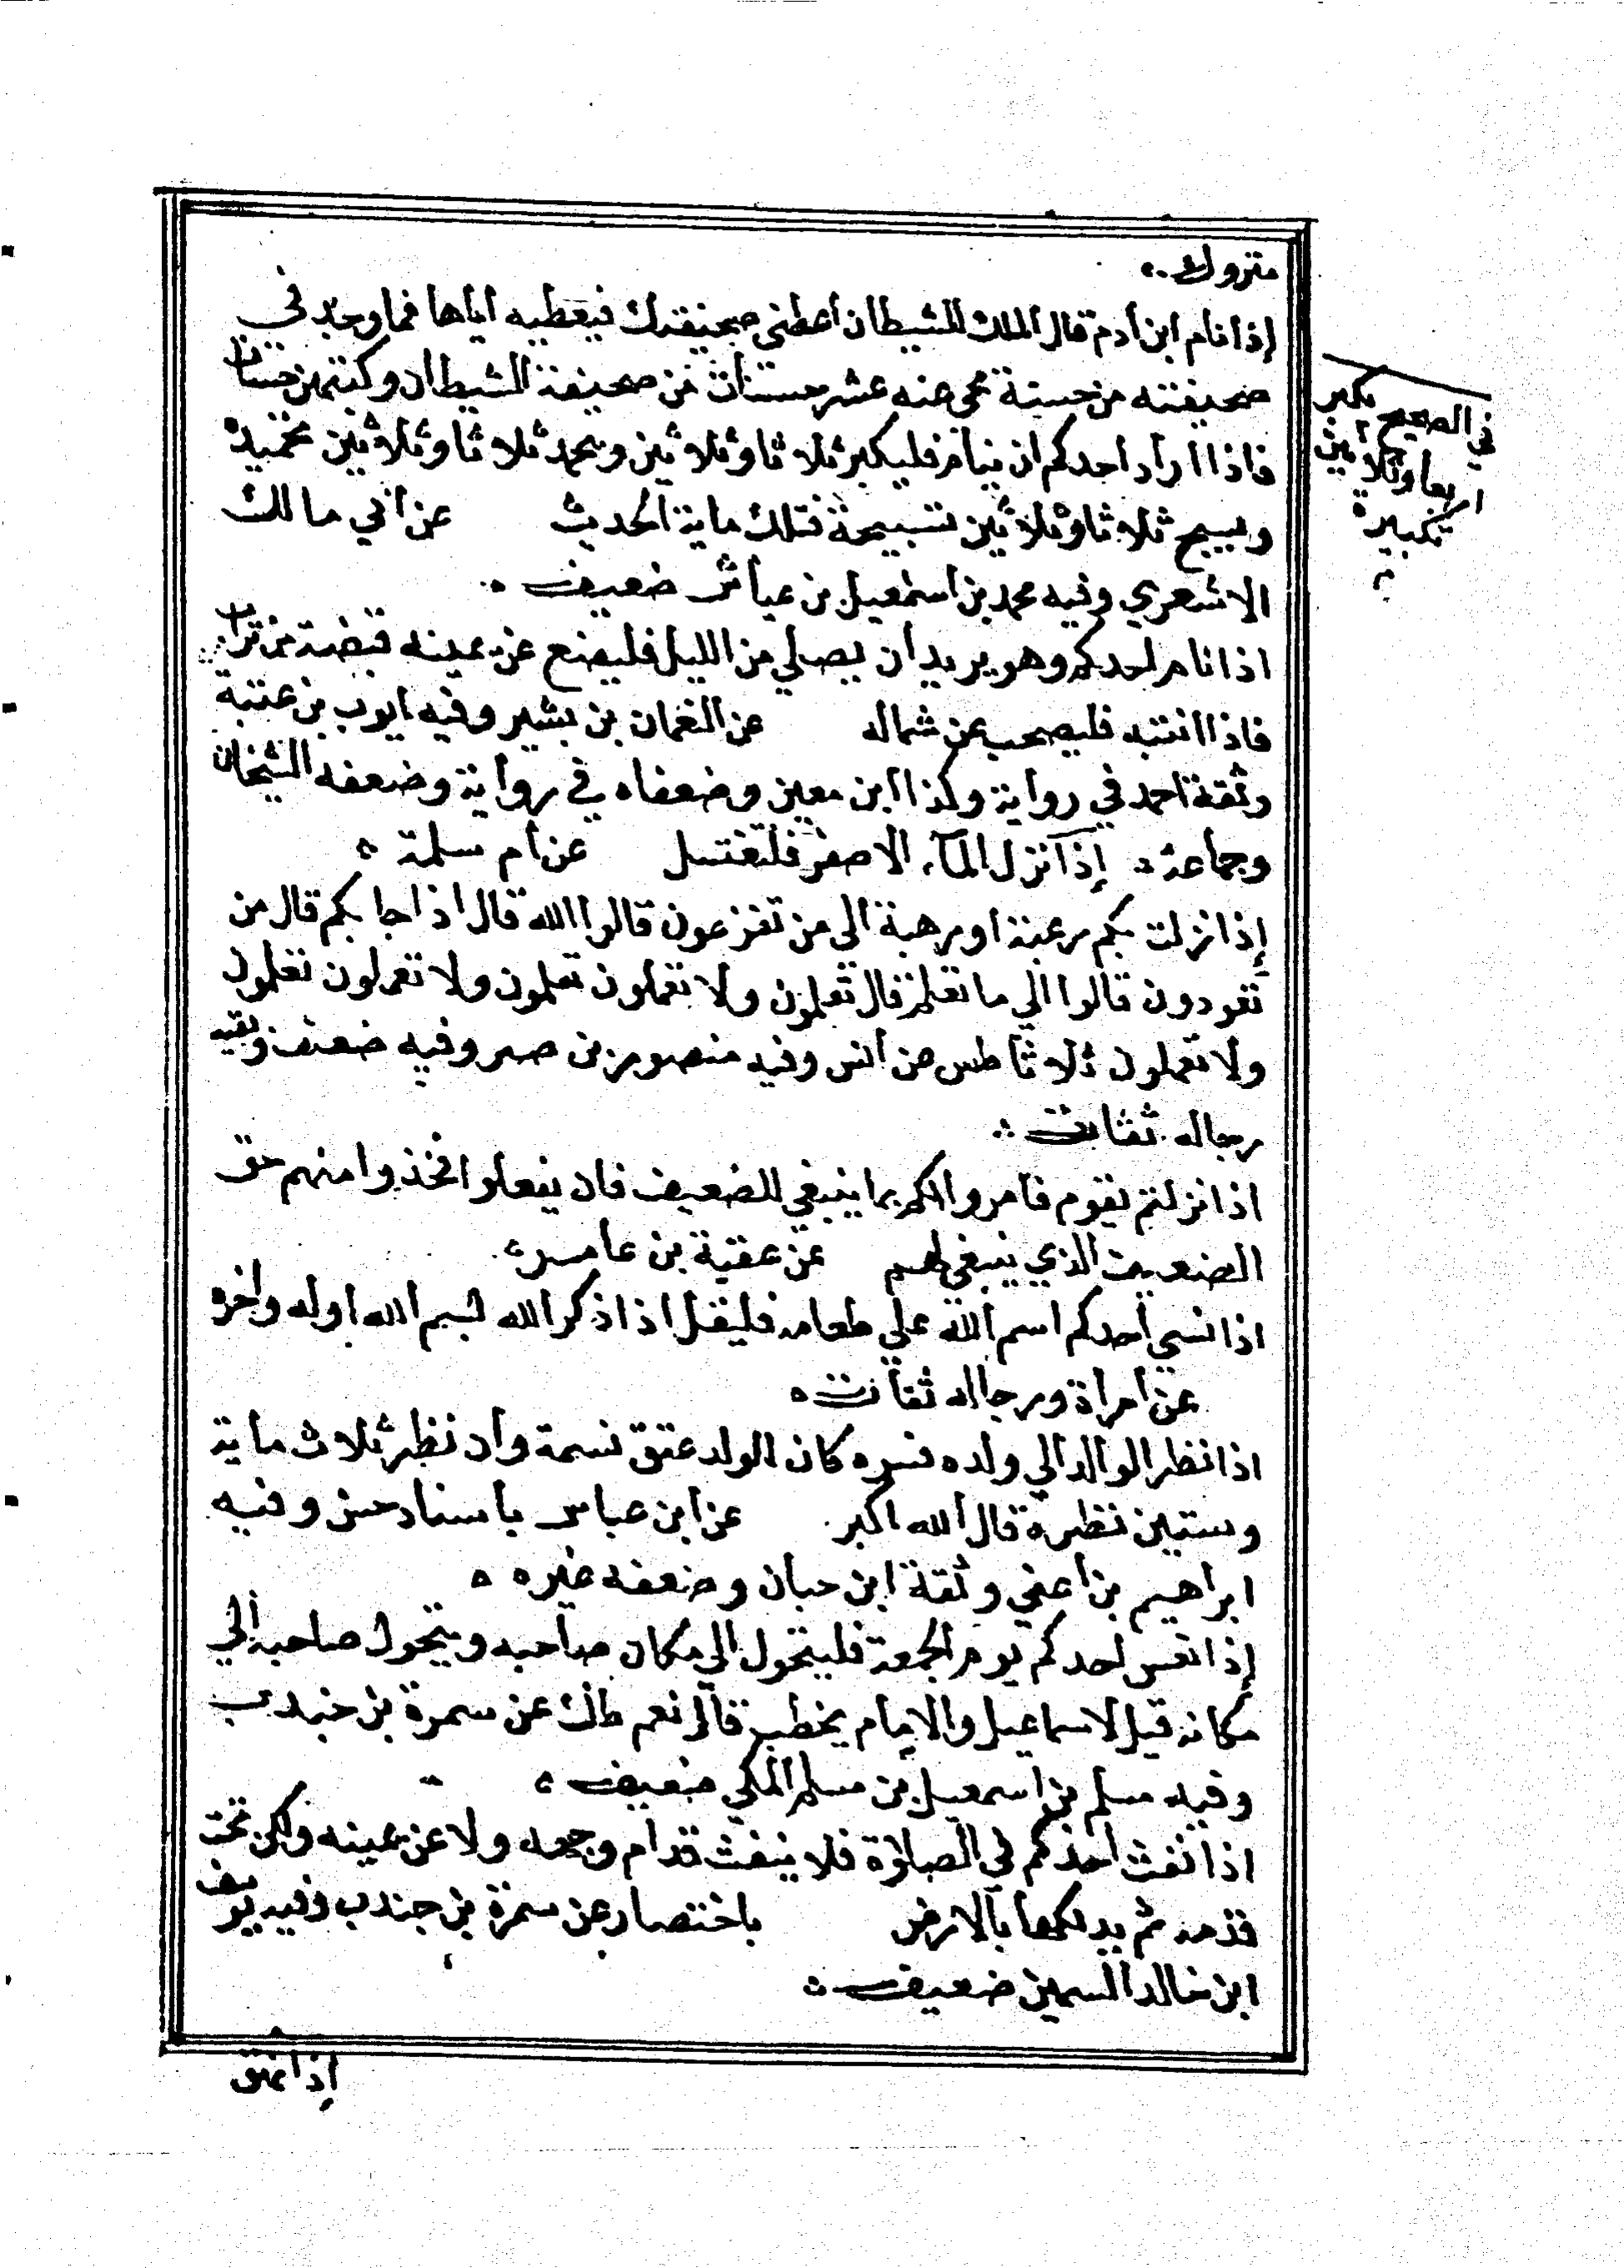 متروك
إذا نام ابن أدم قال الملك للشيطان أعطني صحيفتك فيعطيه أياها فما وجد في
صحيفته من حسنة محى عنه عشر حسنات من صحيفة الشيطان وكتبهن حسنات
فاذا اراد احدكم ان ينام فليكبر ثلاثا وثلاثين ويحمد ثلاثا وثلاثين تحميدة
ويسبح ثلاثا وثلاثين تسبيحة فتلك ماية الحديث عن أبي مالك
الاشعري وفيه محمد بن اسمعيل بن عياش ضعيف
في الصحيح يكبر
اربعا وثلاثين
تكبيرة
اذا نام احدكم وهو يريد أن يصلي من الليل فليضع عن يمينه قبضة من تراب
فاذا انتبه فليحصب عن شماله عن النعمان بن بشير وفيه ايوب بن عتبة
وثقة احمد في رواية وكذا ابن معين وضعفاه في رواية وضعفه الشيخان
وجماعة إذا نزل المآء الاصفر فلتغتسل عن أم سلمة
إذا نزلت بكم رغبة او رهبة الي من تفزعون قالوا الله قال اذا جا بكم قال من
تعودون قالوا الي ما نعلم قال تعلمون ولا تعملون تعلمون ولا تعملون تعلمون
ولا تعملون ثلاثا طس عن أنس وفيه منصور بن صر وفيه ضعف وبقيه
رجاله ثقات
اذا نزلتم بقوم فامروا لكم بما ينبغي للضعيف فان يفعلوا فخذوا منهم حق
الضعيف الذي ينبغي لهم عن عقبة بن عامر
اذا نسي أحدكم اسم الله علي طعامه فليقل اذا ذكر الله بسم الله اوله واخره
عن امرأة ورجاله ثقات
اذا نظر الوالد الي ولده فسره كان للولد عتق نسمة وان نظر ثلاث ماية
وستين نظرة قال الله اكبر عن ابن عباس بأسناد حسن وفيه
ابراهيم بن اعين وثقة ابن حبان وضعفه غيره
إذا نعس احدكم يوم الجمعة فليتحول الي مكان صاحبه ويتحول صاحبه الي
مكانه قيل لاسماعيل والامام يخطب قال نعم طك عن سمرة بن جندب
وفيه مسلم بن اسمعيل بن مسلم المكي ضعيف
اذا نفث أحدكم في الصلاة فلا ينفث قدام وجهه ولا عن يمينه ولكن تحت
قدمه ثم يدلكها بالارض باختصار عن سمرة بن جندب وفيه يوسف
ابن خالد السمين ضعيف
إذا نهق